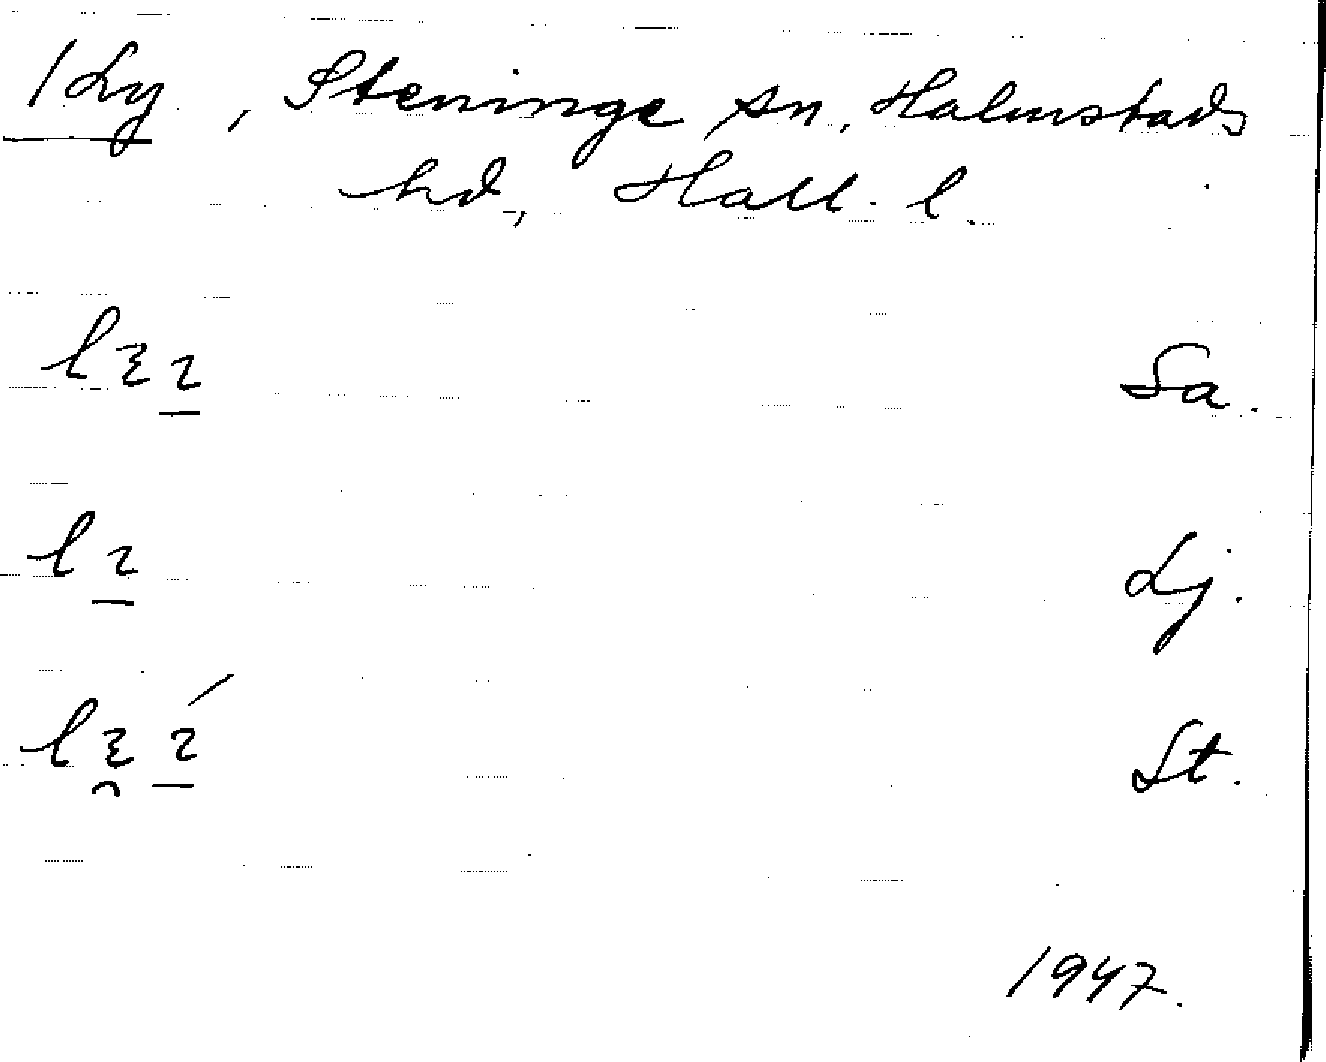 /Ly, Steninge sn, Halmstads
hd, Hall. l.
Sa.
Lj.
St.
1947.